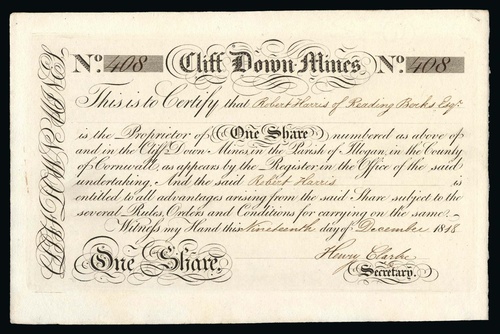 No. 408 Cliff Down Mines No. 408
This is to Certify that Robert Harris of Reading Berks Esqr.
is the Proprietor of One Share numbered as above of
and in the Cliff Down Mines, in the Parish of Illogan, in the County
of Cornwall, as appears by the Register in the Office of the said
undertaking. And the said Robert Harris is
entitled to all advantages arising from the said Share subject to the
several Rules, Orders and Conditions for carrying on the same.
Witness my Hand this Nineteenth day of December 18
One Share,
Henry Clarke
Secretary.
CLIFF DOWN MINES